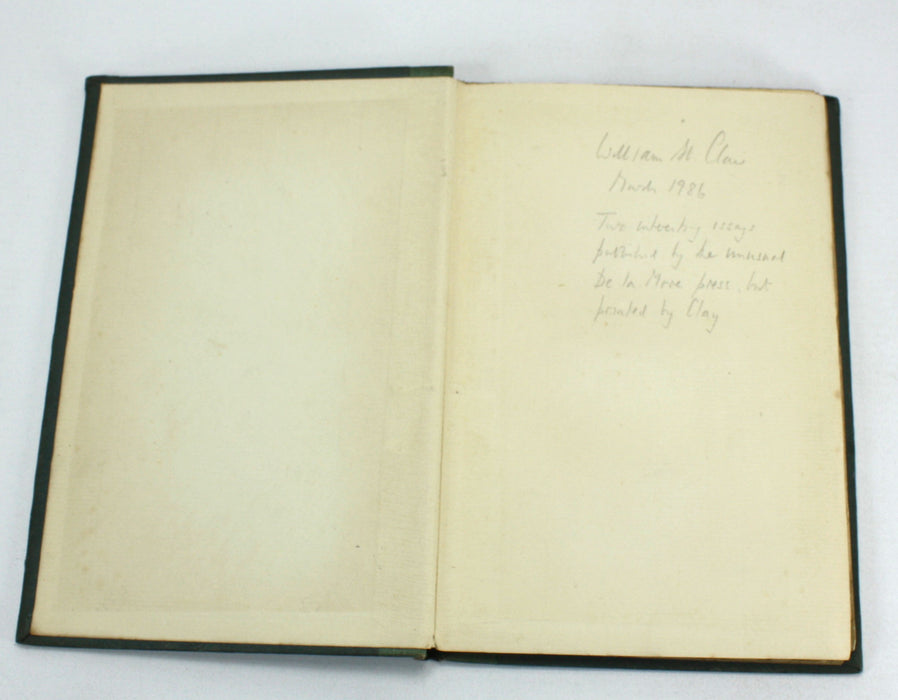 William St. Clair
March 1986
Two interesting essays
published by the unusual
De la More press, but
printed by Clay